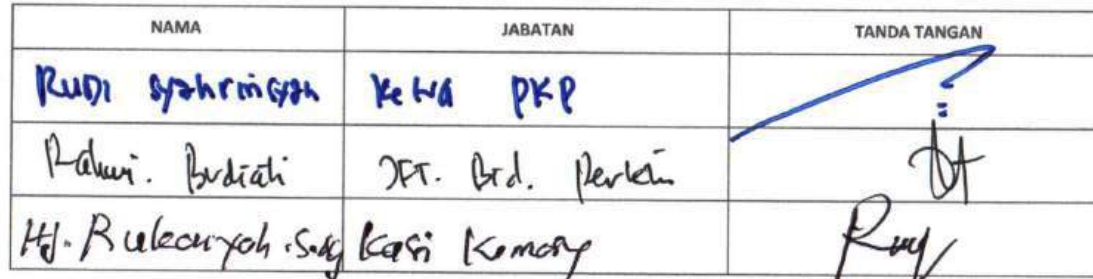 NAMA JABATAN TANDA TANGAN
RUDI Syahriansyah Ketua PKP
Rahmi. Budiati JFT. Bid. Perkim
Hj. Rukaiyah. S.Ag Kasi Kemasy